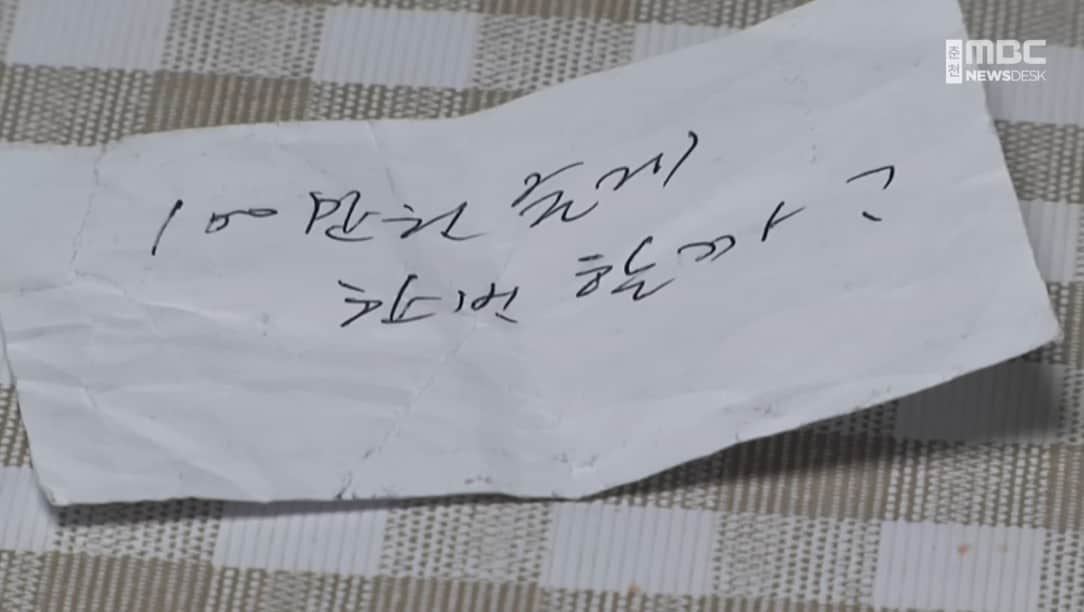 춘천 MBC
NEWSDESK
100만원 줄게
한번 할까?